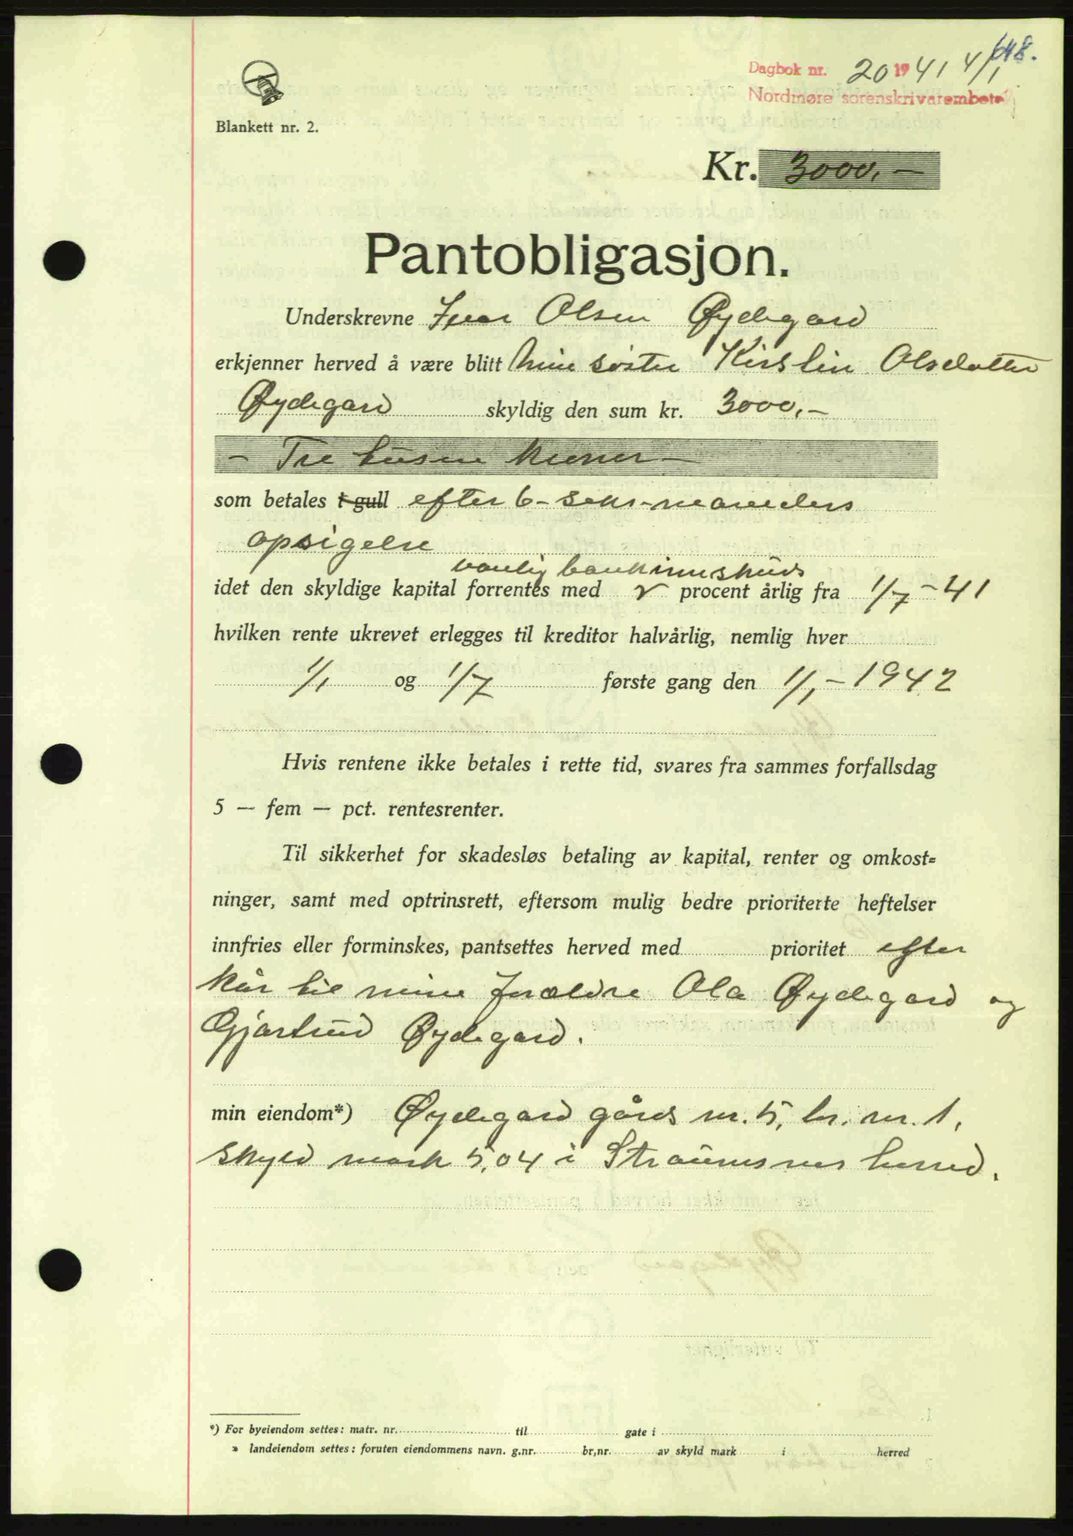 648.
Dagbok nr. 20 1941 4/1
Nordmøre sorenskrivarembete
Blankett nr. 2.
Kr. 3000,-
Pantobligasjon.
Underskrevne Ivar Olsen Øydegard
erkjenner herved å være blitt min søster Kirstin Olsdatter
Øydegard skyldig den sum kr. 3000,-
- Tre tusen kroner -
som betales i gull efter 6- seks- maaneders
opsigelse
vanlig bankinnskuds
idet den skyldige kapital forrentes med procent årlig fra 1/7-41
hvilken rente ukrevet erlegges til kreditor halvårlig, nemlig hver
1/1 og 1/7 første gang den 1/1-1942
Hvis rentene ikke betales i rette tid, svares fra sammes forfallsdag
5 — fem — pct. rentesrenter.
Til sikkerhet for skadesløs betaling av kapital, renter og omkost=
ninger, samt med optrinsrett, eftersom mulig bedre prioriterte heftelser
innfries eller forminskes, pantsettes herved med prioritet efter
kår til mine forældre Ola Øydegard og
Gjartrud Øydegard.
min eiendom*) Øydegard gårds nr. 5, br. nr. 1,
skyld mark 5,04 i Straumsnes herred.
*) For byeiendom settes: matr. nr. til gate i
» landeiendom settes: foruten eiendommens navn. g.nr. br,nr. av skyld mark i herred